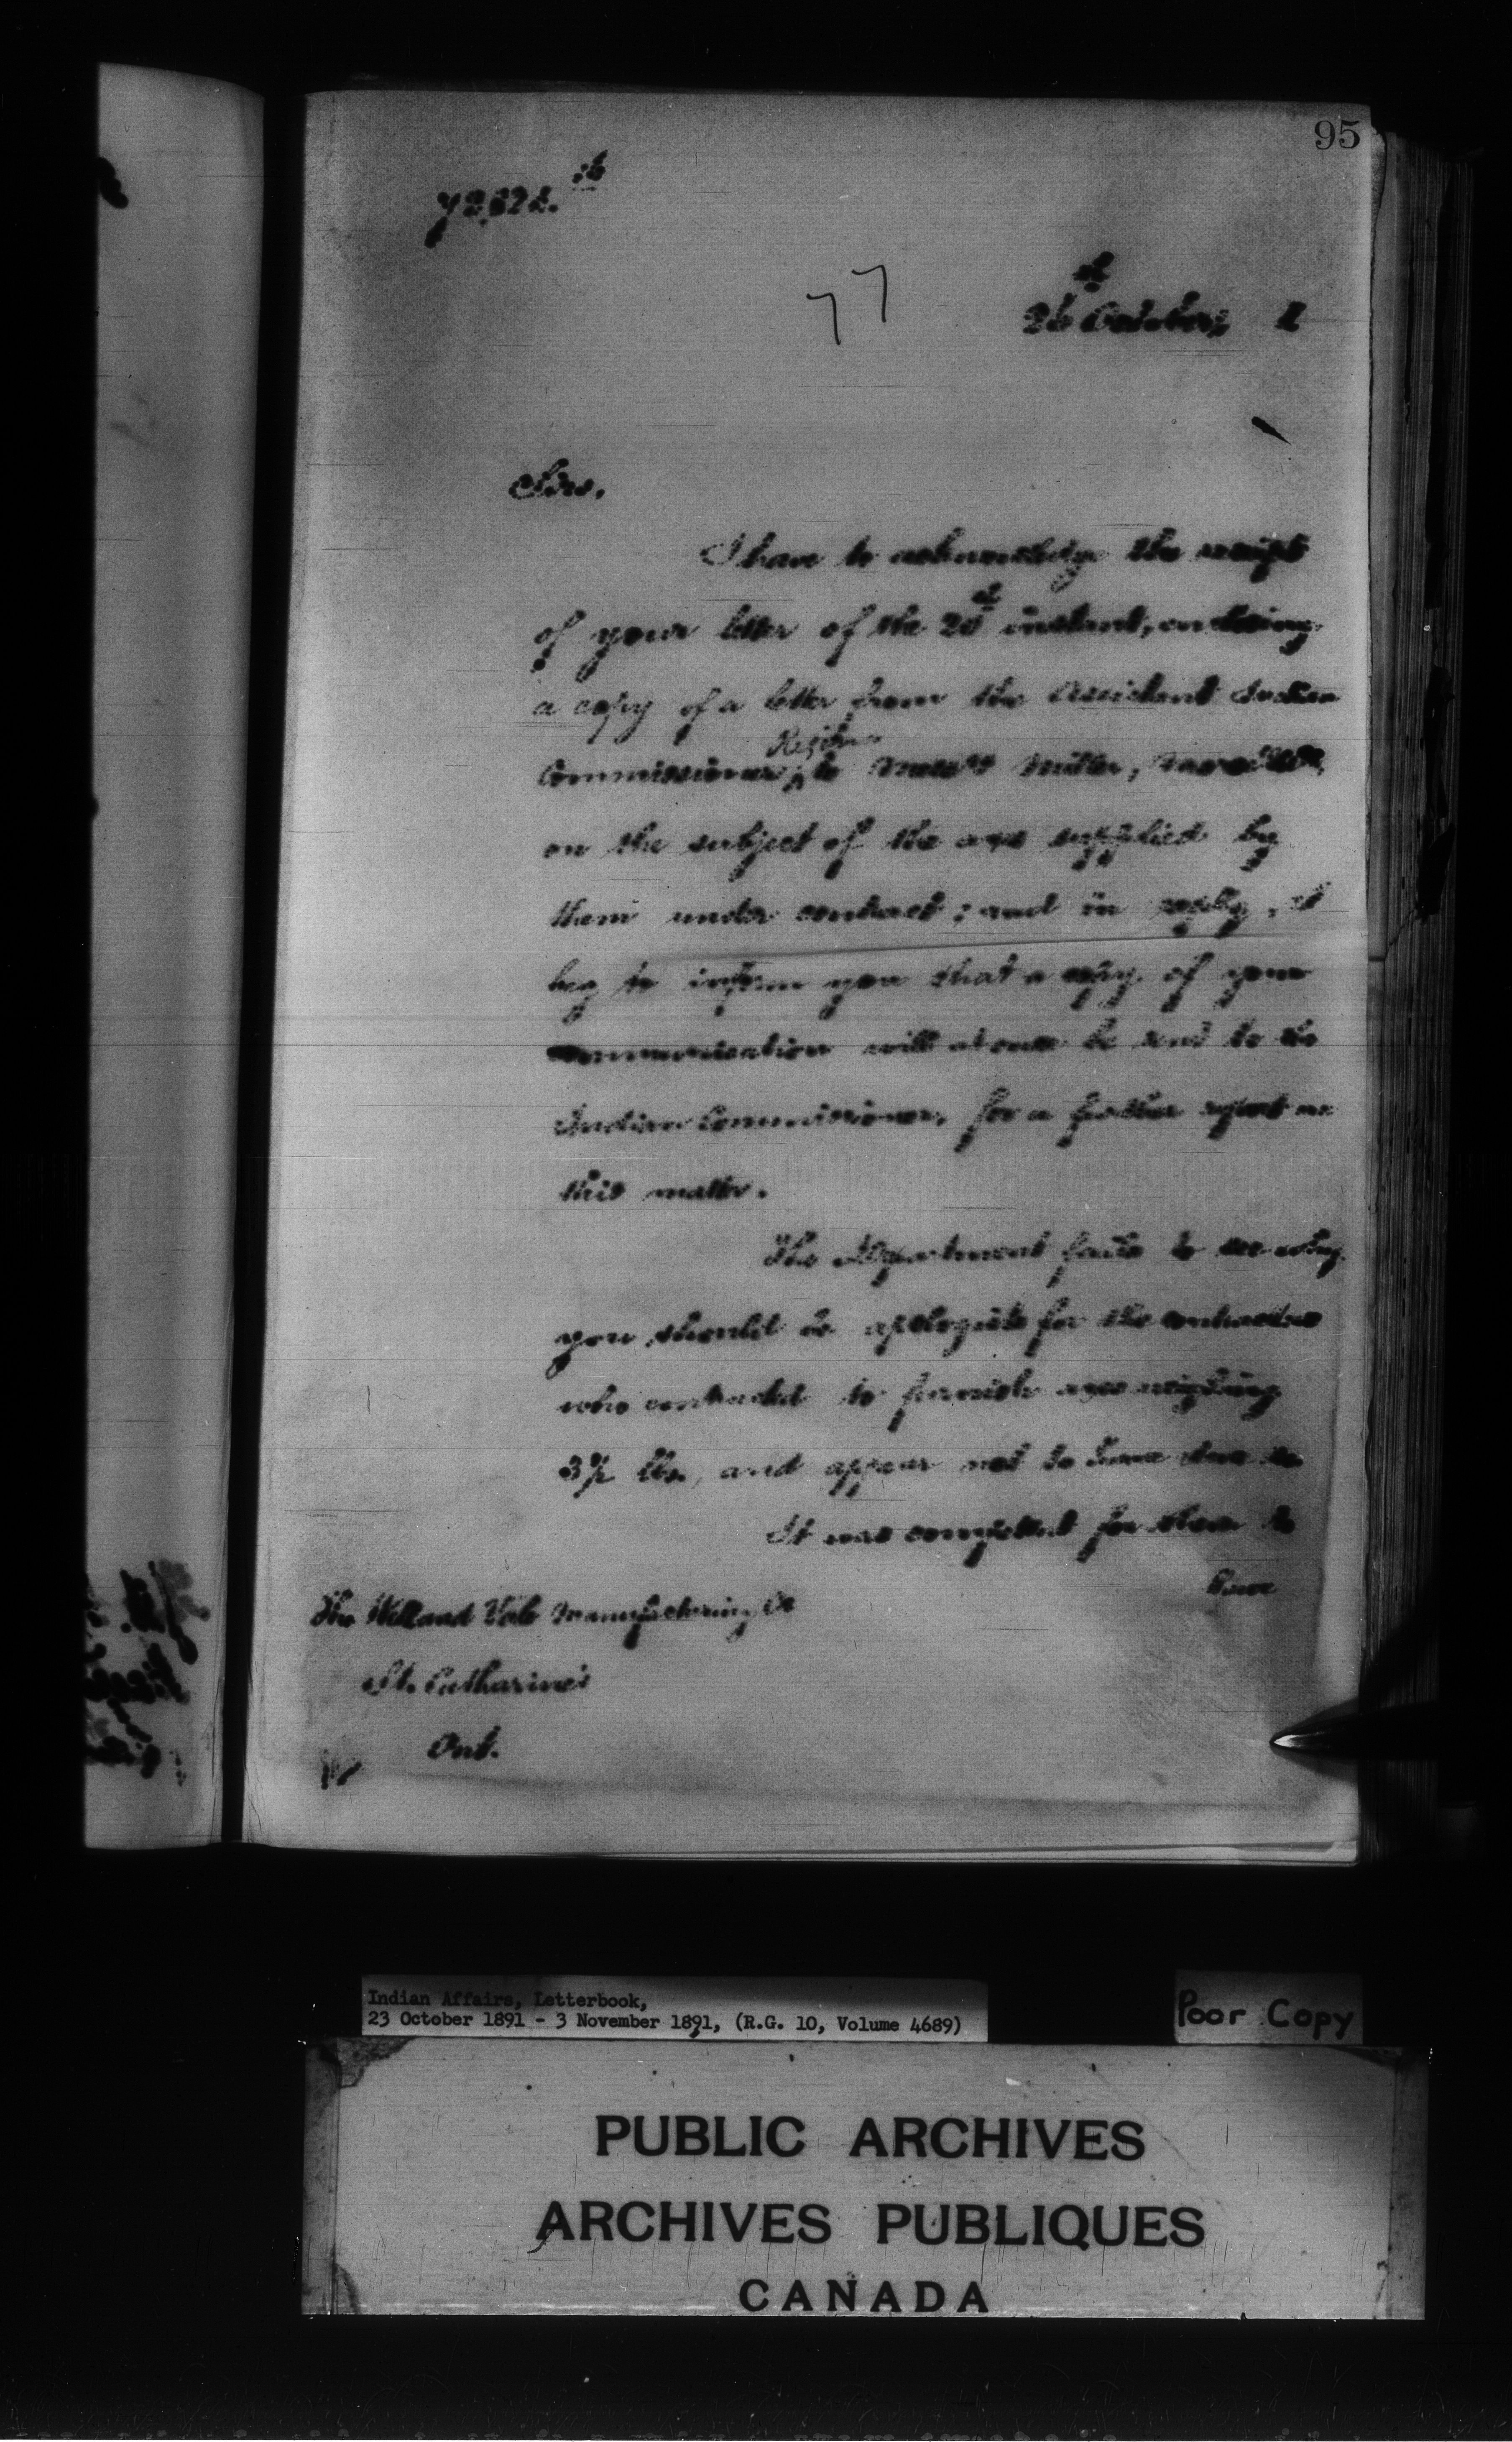 95
26th October, 1
Sirs,
I have to acknowledge the receipt
of your letter of the 20th instant, enclosing
a copy of a letter from the Assistant Indian
Commissioner, Regina to Messrs Miller,
on the subject of the axes supplied by
them under contract; and in reply, I
beg to inform you that a copy of your
communication will at once be sent to the
Indian Commissioner, for a further report on
this matter.
The Department fails to see why
you should be apologists for the contractors
who contracted to furnish axes weighing
3½ lbs, and appear not to have done so.
It was competent for them to
have
The Welland Vale Manufacturing Co
St. Catharines
Ont.
Indian Affairs, Letterbook,
23 October 1891 - 3 November 1891, (R.G. 10, Volume 4689)
Poor Copy
PUBLIC ARCHIVES
ARCHIVES PUBLIQUES
CANADA